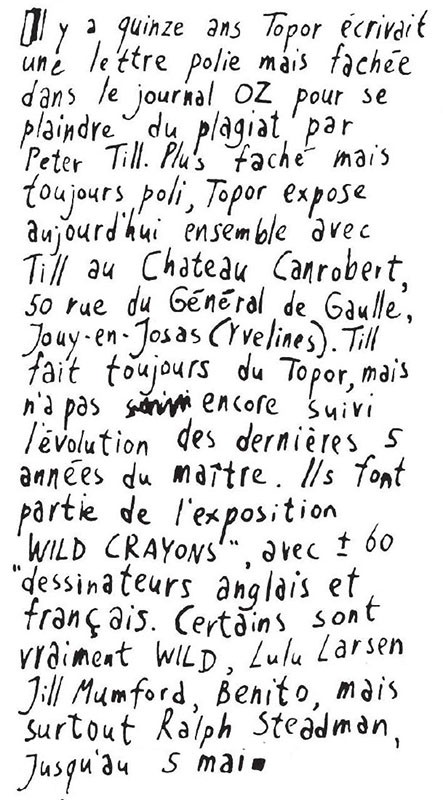 Il y a quinze ans Topor écrivait
une lettre polie mais fachée
dans le journal OZ pour se
plaindre du plagiat par
Peter Till. Plus faché mais
toujours poli, Topor expose
aujourd'hui ensemble avec
Till au Chateau Canrobert,
50 rue du Général de Gaulle,
Jouy-en-Josas (Yvelines). Till
fait toujours du Topor, mais
n'a pas encore suivi
l'évolution des dernières 5
années du maître. Ils font
partie de l'exposition
"WILD CRAYONS", avec ± 60
"dessinateurs anglais et
français. Certains sont
vraiment WILD, Lulu Larsen
Jill Mumford, Benito, mais
surtout Ralph Steadman,
Jusqu'au 5 mai